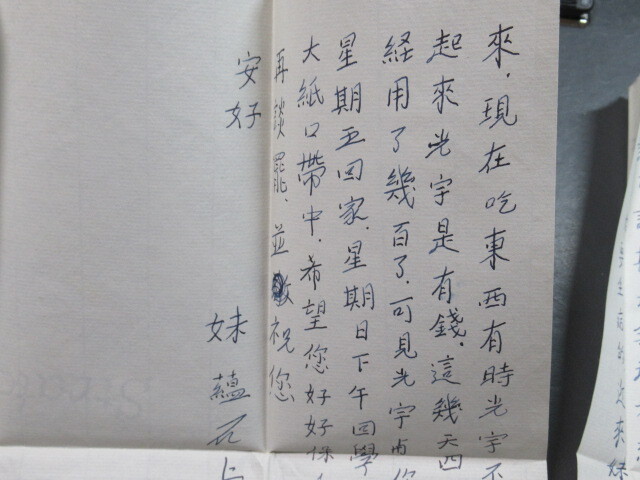 來，現在吃東西有時光宇不
起來光宇是有錢，這幾天
経用了幾百了，可見光宇
星期五回家，星期日下午回學
大紙口帶中，希望您好好保
再談罷，並敬祝您
安好
妹蘊上